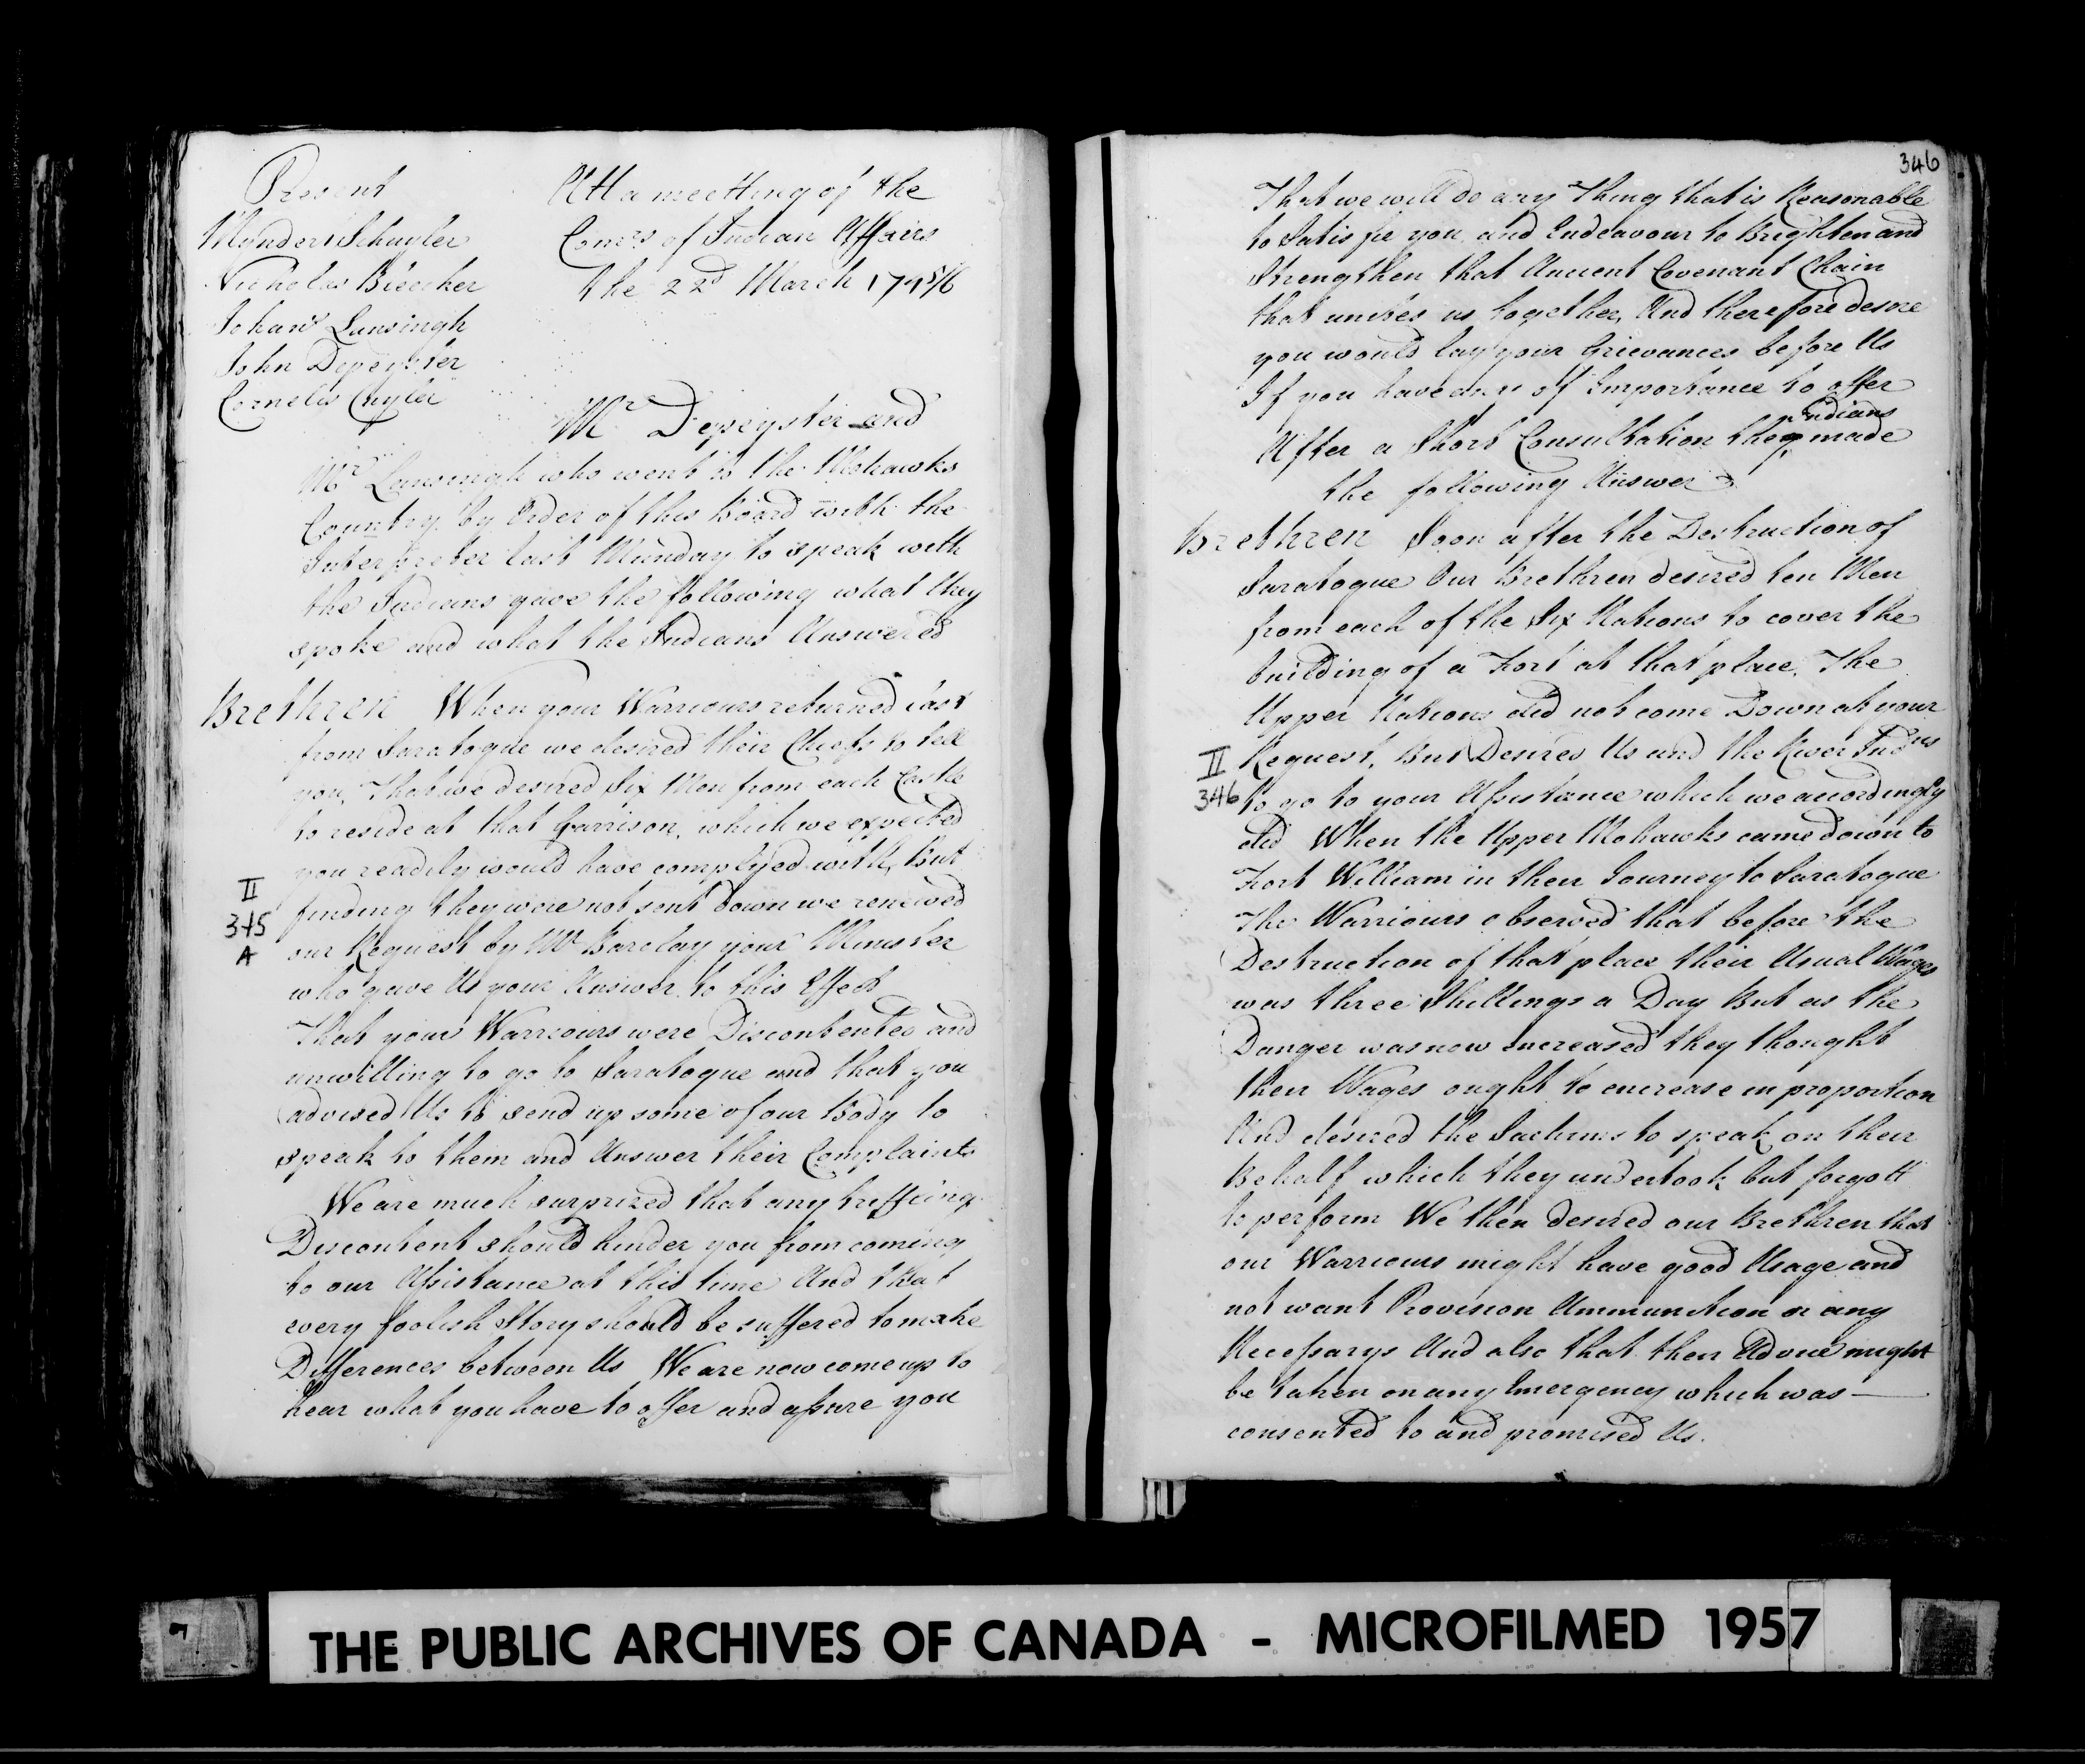 Present
Mynders Schuyler
Nicholas Bleecker
Johans Lansingh
John Depeyster
Cornelis Cuyler
Att a meetting of the
Comrs of Indian Affairs
the 22d March 1745/6
Mr Depeyster and
Mr Lansingh who went to the Mohawks
Country by Order of this Board with the
Interpreter last Munday to speak with
the Indians gave the following what they
spoke and what the Indians Answered
Brethren When your Warriours returned last
from Saratogue we desired their Cheifs to tell
you, That we desired Six Men from each Castle
to reside at that Garrison, which we expected
you readily would have complyed with, But
finding they were not sent down we renewed
our Request by Mr Barclay your Minister
who gave Us your Answer to this Effect
II
345
A
That your Warriours were Discontented and
unwilling to go to Saratogue and that you
advised Us to send up some of our Body to
speak to them and Answer their Complaints
We are much surprized that any triffling
Discontent should hinder you from coming
to our Assistance at this time And that
every foolish Story should be suffered to make
Differences between Us We are now come up to
hear what you have to offer and assure you
346
That we will do any Thing that is Reasonable
to Satisfie you and Endeavour to Brighten and
Strengthen that Ancient Covenant Chain
that unites us together, And therefore desire
you would lay your Grievances before Us
If you have any of Importance to offer
After a Short Consultation they Indians made
the following Answer
Brethren Soon after the Destruction of
Saratogue Our Brethren desired ten Men
from each of the Six Nations to cover the
building of a Fort at that place, The
Upper Nations did not come Down at your
Request, But Desired Us and the River Indns
II
346
to go to your Assistance which we accordingly
did When the Upper Mohawks came down to
Fort William in their Journey to Saratogue
The Warriours observed that before the
Destruction of that place their Usual Wages
was three Shillings a Day But as the
Danger was now encreased they thought
their Wages ought to encrease in proportion
And desired the Sachims to speak on their
Behalf which they undertook but forgott
to perform We then desired our Brethren that
our Warriours might have good Usage and
not want Provision Ammunition or any
Necessarys And also that their Advice might
be taken on any Emergency which was—
consented to and promised Us.
THE PUBLIC ARCHIVES OF CANADA - MICROFILMED 1957